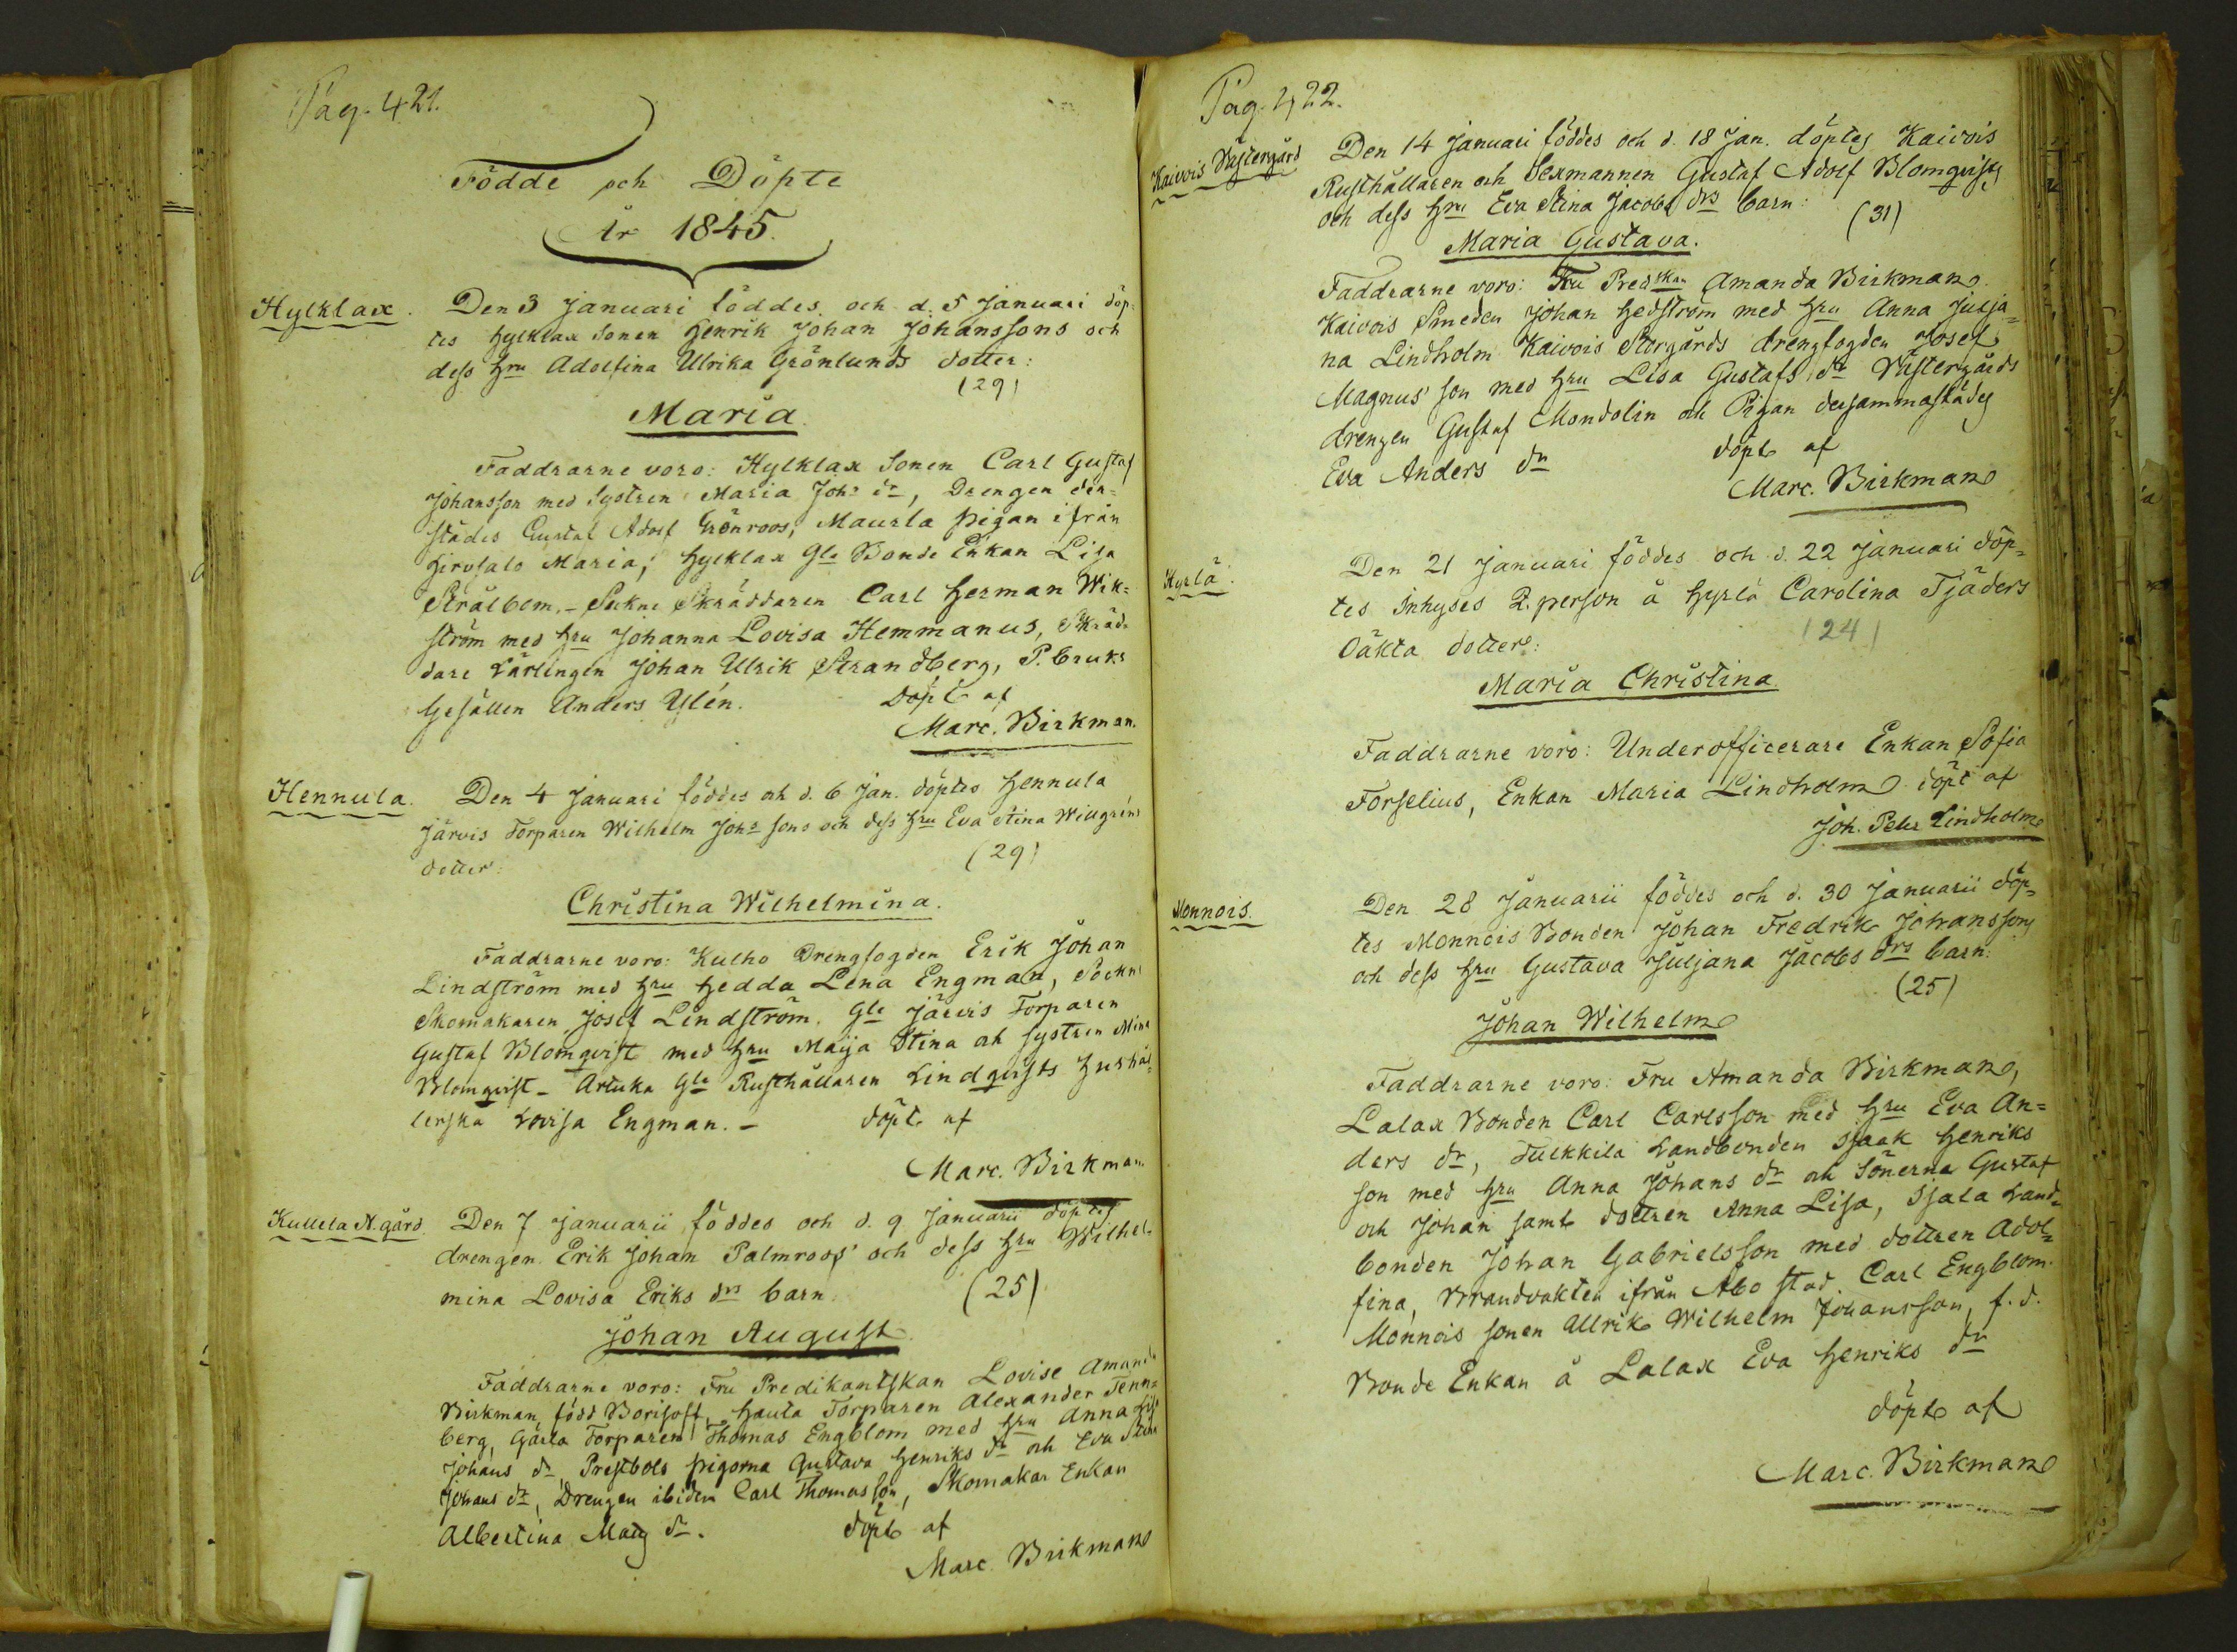 Pag. 421.
Födde och Döpte
År 1845.
Hylklax. Den 3 Januari föddes och d. 5 Januari döp-
tes Hylklax Sonen Henrik Johan Johanssons och
dess Hru Adolfina Ulrika Grönlunds dotter:
(29)
Maria.
Faddrarne voro: Hylklax Sonen Carl Gustaf
Johansson med Systren Maria Johs dr, Drengen der-
städes Gustaf Adolf Grönroos, Maurla pigan ifrån
Hirvsalo Maria, Hylklax Gle Bonde Enkan Lisa
Strålbom. - Sokne Skräddaren Carl Herman Wik-
ström med Hru Johanna Lovisa Hemmanus, Skräd-
dare Lärlingen Johan Ulrik Strandberg, P. bruks
Gesällen Anders Ylén. döpt af
Marc. Birkman.
Hennula. Den 4 Januari föddes och d. 6 Jan. döptes Hennula
Järvis Torparen Wilhelm Johs sons och dess Hru Eva Stina Willgréns
dotter: (29)
Christina Wilhelmina.
Faddrarne voro: Kulho Drengfogden Erik Johan
Lindström med Hru Hedda Lena Engman, Sockne
Skomakaren Josef Lindström. Gle Järvis Torparen
Gustaf Blomqvist med Hru Maija Stina och systren Mina
Blomqvist - Artuka Gle Rusthållaren Lindqvists Hushål-
lerska Lovisa Engman. - döpt af
Marc. Birkman
Kullela N.gård Den 7 Januarii föddes och d. 9 Januarii döptes
drengen Erik Johan Palmroos' och dess Hru Wilhel-
mina Lovisa Eriks drs barn. (25)
Johan August.
Faddrarne voro: Fru Predikantskan Lovise Amanda
Birkman, född Borisoff, Hauta Torparen Alexander Tenn-
berg, Gärla Torparen Thomas Engblom med Hru Anna Lisa
Johans dr, Prestbols pigorna Gustava Henriks dr och Eva Stina
Johans dr, Drengen ibidem Carl Thomasson, Skomakar Enkan
Albertina Mats dr. döpt af
Marc. Birkman
Pag. 422.
Kaivois Västergård Den 14 Januari föddes och d. 18 Jan. döptes Kaivois
Rusthållaren och Sexmannen Gustaf Adolf Blomqvists
och dess Hru Eva Stina Jacobs drs barn: (31)
Maria Gustava.
Faddrarne voro: Fru Predskan Amanda Birkman.
Kaivois Smeden Johan Hedström med Hru Anna Julja-
na Lindholm Kaivois Storgårds drengfogden Josef
Magnus' son med Hru Lisa Gustafs dr Västergårds
drengen Gustaf Mondolin och Pigan dersammastädes
Eva Anders dr döpt af
Marc. Birkman
Hyrlä. Den 21 Januari föddes och d. 22 Januari döp-
tes Inhyses Q. person å Hyrlä Carolina Tjäders
Oäkta dotter: (24)
Maria Christina.
Faddrarne voro: Underofficerare Enkan Sofia
Forselius, Enkan Maria Lindholm döpt af
Joh. Petr Lindholm
Monnois. Den 28 Januarii föddes och d. 30 Januarii döp-
tes Monnois Bonden Johan Fredrik Johanssons
och dess Hru Gustava Juljana Jacobs drs barn.
(25)
Johan Wilhelm
Faddrarne voro: Fru Amanda Birkman,
Lalax Bonden Carl Carlsson med Hru Eva An-
ders dr, Tulkkila Landbonden Isaak Henriks
son med Hru Anna Johans dr och Sönerna Gustaf
och Johan samt dottren Anna Lisa, Isjala Land-
bonden Johan Gabrielsson med dottren Adol-
fina, Brandvakten ifrån Abo stad Carl Engblom.
Monnois sonen Ullrik Wilhelm Johansson, f.d.
Bonde Enkan å Lalax Eva Henriks dr
döpt af
Marc. Birkman